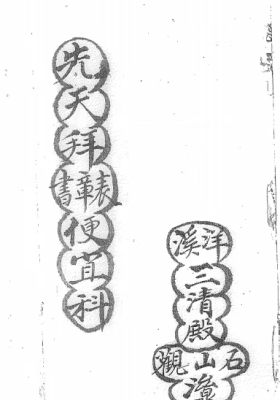 先天拜表章書便宜科
洋溪三清殿石山觀